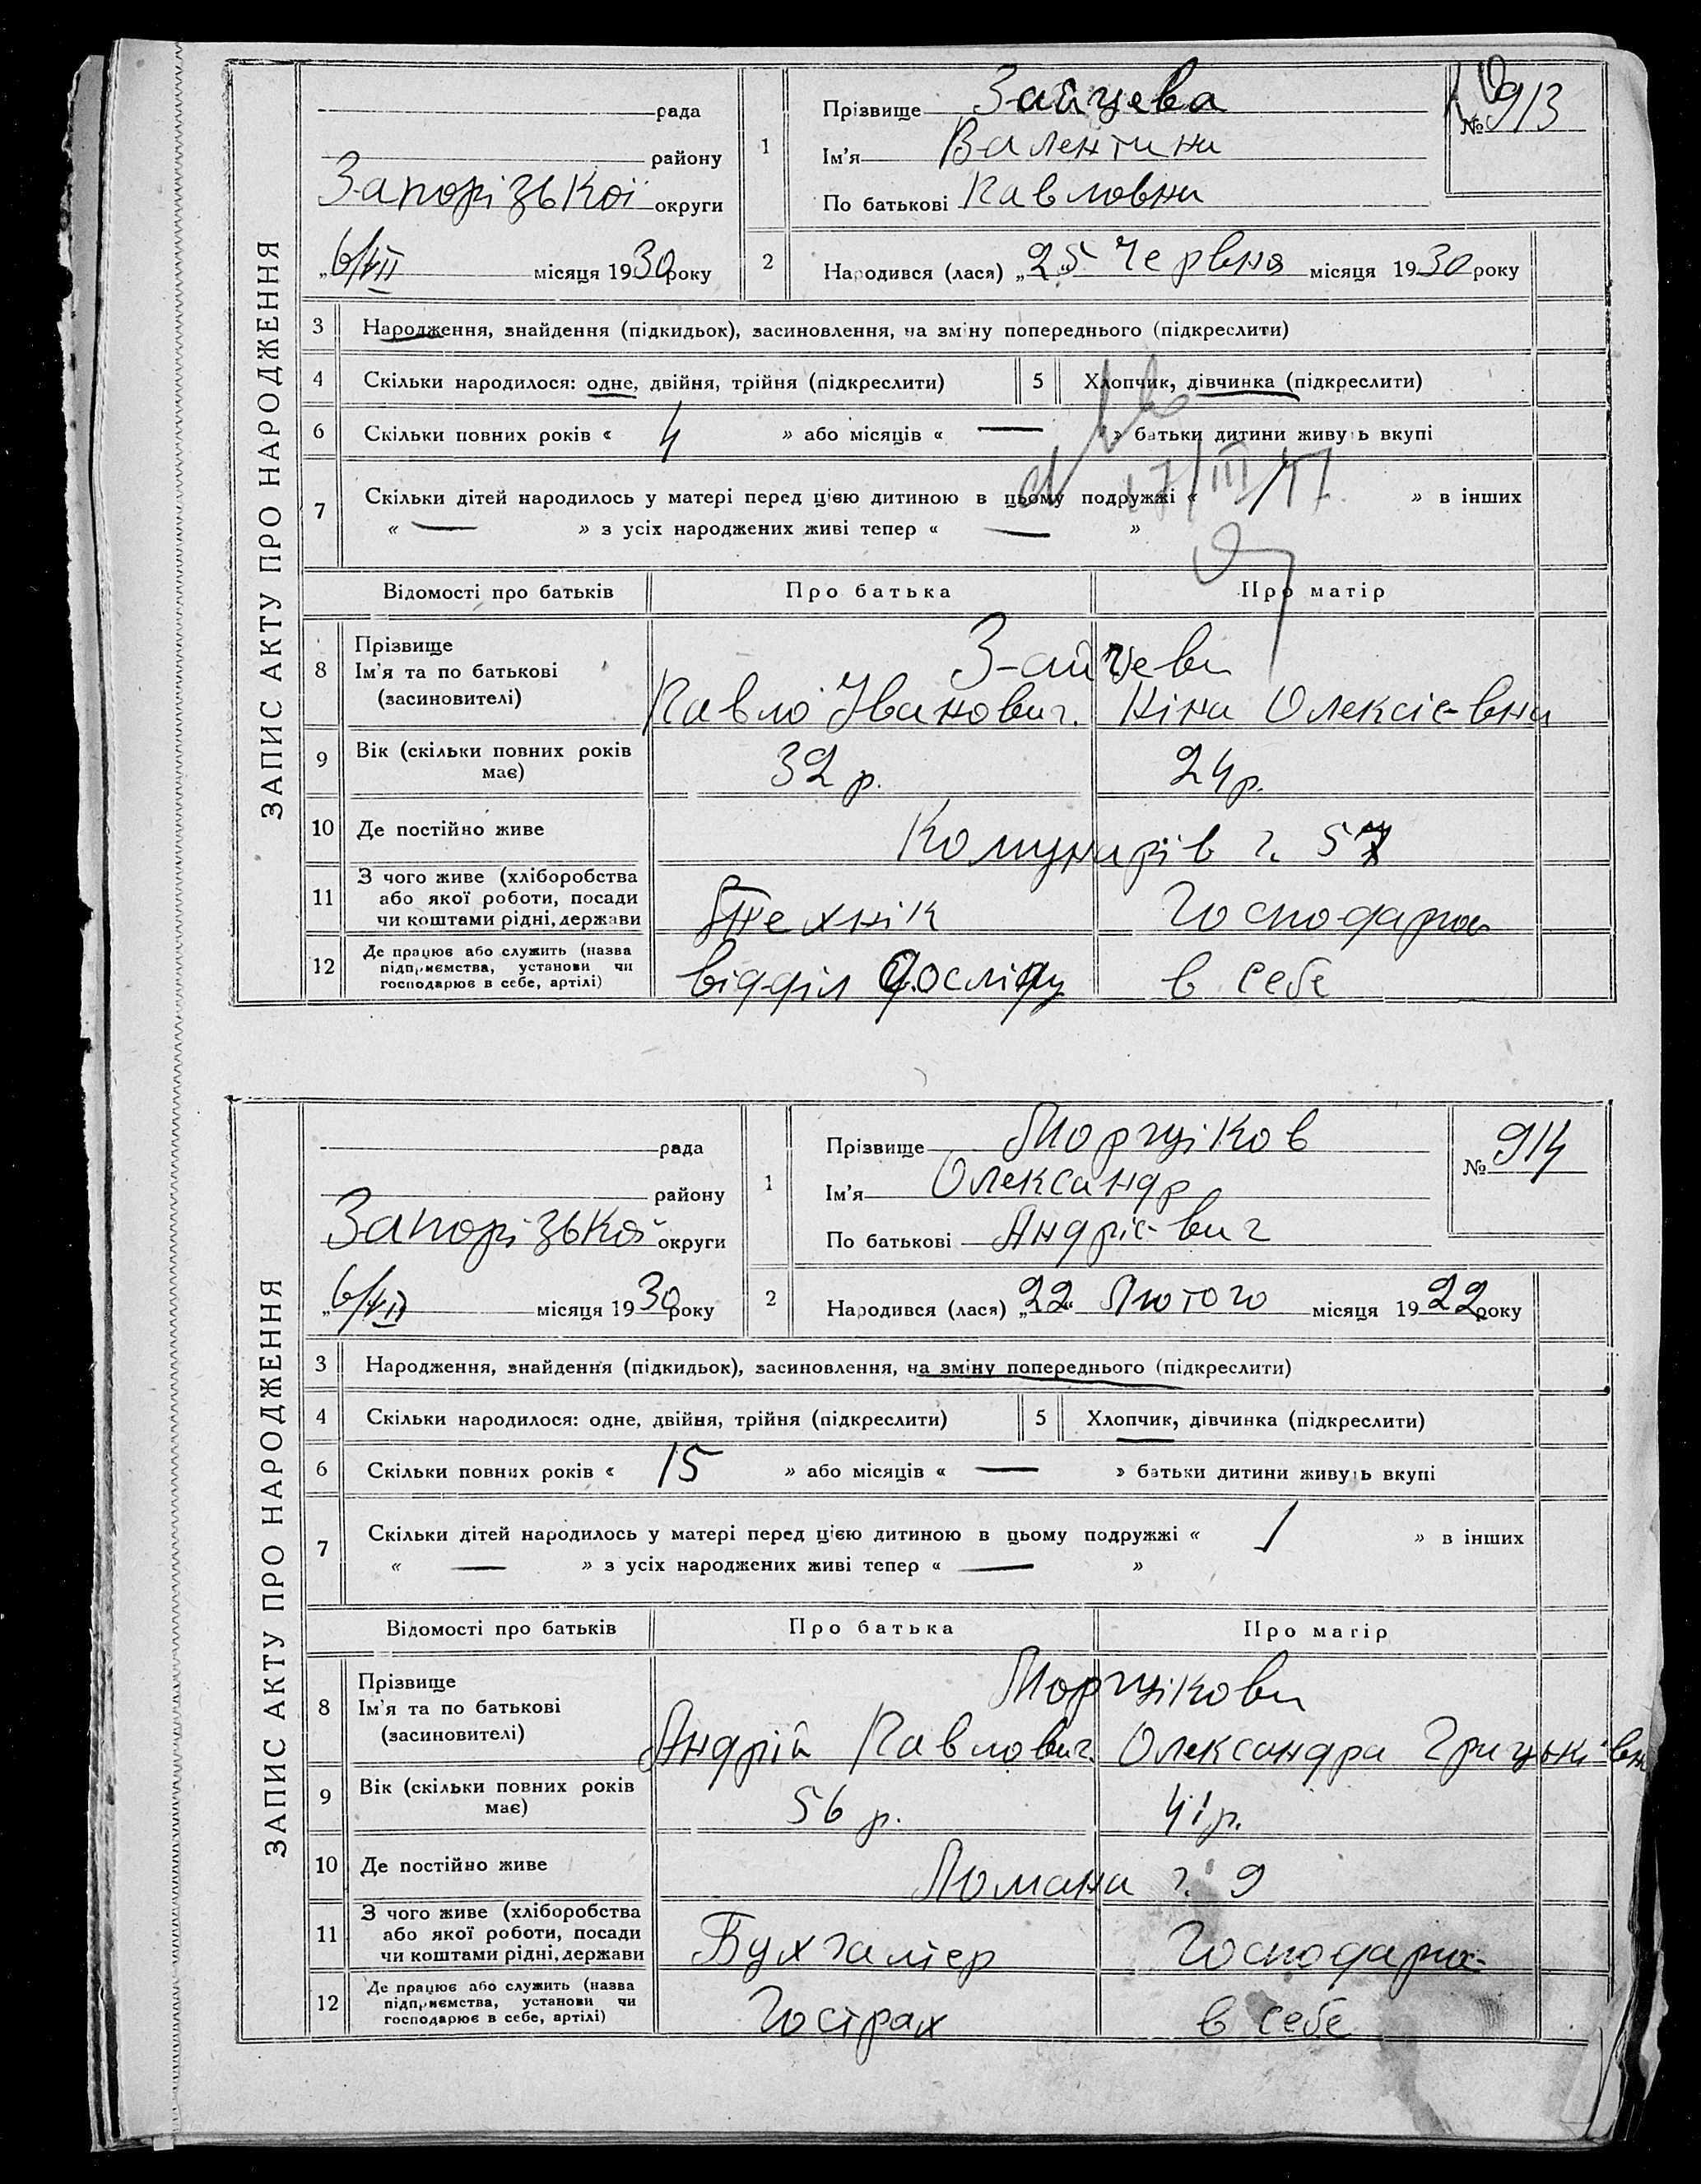 ЗАПИС АКТУ ПРО НАРОДЖЕННЯ
рада
району
Запорізької округи
„6/VII місяця 1930 року
1
Прізвище Зайцева
Ім'я Валентина
По батькові Павловна
№ 913
2
Народився (лася) „25“ Червня місяця 1930 року
3 Народження, знайдення (підкидьок), засиновлення, на зміну попереднього (підкреслити)
4 Скільки народилося: одне, двійня, трійня (підкреслити) 5 Хлопчик, дівчинка (підкреслити)
6 Скільки повних років « 4 » або місяців « — » батьки дитини живуть вкупі
7 Скільки дітей народилось у матері перед цією дитиною в цьому подружжі « » в інших
« — » з усіх народжених живі тепер « — »
Відомості про батьків Про батька Про матір
8 Прізвище
Ім'я та по батькові
(засиновителі)
Зайцеви
Павло Іванович. Ніна Олексіє-вна
9 Вік (скільки повних років має) 32 р. 24 р.
10 Де постійно живе Комунарів г. 57
11 З чого живе (хліборобства або якої роботи, посади чи коштами рідні, держави Технік Господарює
12 Де працює або служить (назва підприємства, установи чи господарює в себе, артілі) відділ Досліду в себе
ЗАПИС АКТУ ПРО НАРОДЖЕННЯ
рада
району
Запорізької округи
„6/VII місяця 1930 року
1
Прізвище
Ім'я Олександр
По батькові Андріє-вич
№ 914
2
Народився (лася) „22“ Лютого місяця 1922 року
3 Народження, знайдення (підкидьок), засиновлення, на зміну попереднього (підкреслити)
4 Скільки народилося: одне, двійня, трійня (підкреслити) 5 Хлопчик, дівчинка (підкреслити)
6 Скільки повних років « 15 » або місяців « — » батьки дитини живуть вкупі
7 Скільки дітей народилось у матері перед цією дитиною в цьому подружжі « 1 » в інших
« — » з усіх народжених живі тепер « — »
Відомості про батьків Про батька Про матір
8 Прізвище
Ім'я та по батькові
(засиновителі)
Андрій Павлович. Олександра
9 Вік (скільки повних років має) 56 р. 41 р.
10 Де постійно живе г. 9
11 З чого живе (хліборобства або якої роботи, посади чи коштами рідні, держави Бухгалтер Господарює
12 Де працює або служить (назва підприємства, установи чи господарює в себе, артілі) Гострах в себе